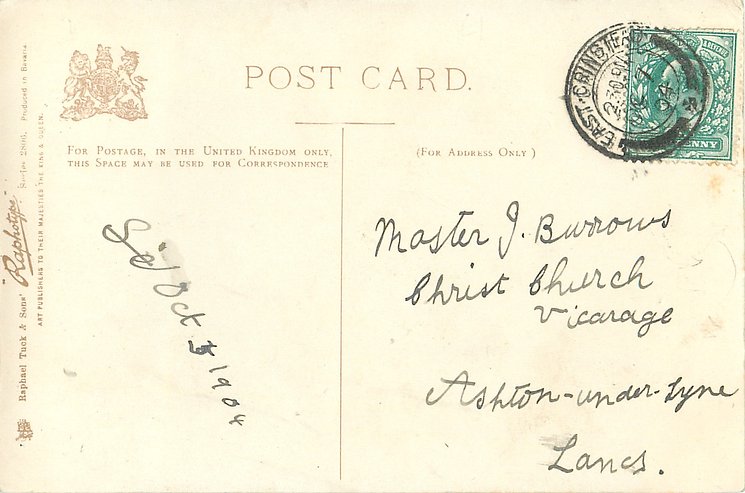 POST CARD.
FOR POSTAGE, IN THE UNITED KINGDOM ONLY,
THIS SPACE MAY BE USED FOR CORRESPONDENCE
(FOR ADDRESS ONLY)
EAST GRINSTEAD
PENNY
Raphael Tuck & Sons' "Raphotype" Series 2806. Produced in Bavaria
ART PUBLISHERS TO THEIR MAJESTIES THE KING & QUEEN.
Oct
1904
Master J. Burrows
Christ Church
Vicarage
Ashton-under-Lyne
Lancs.